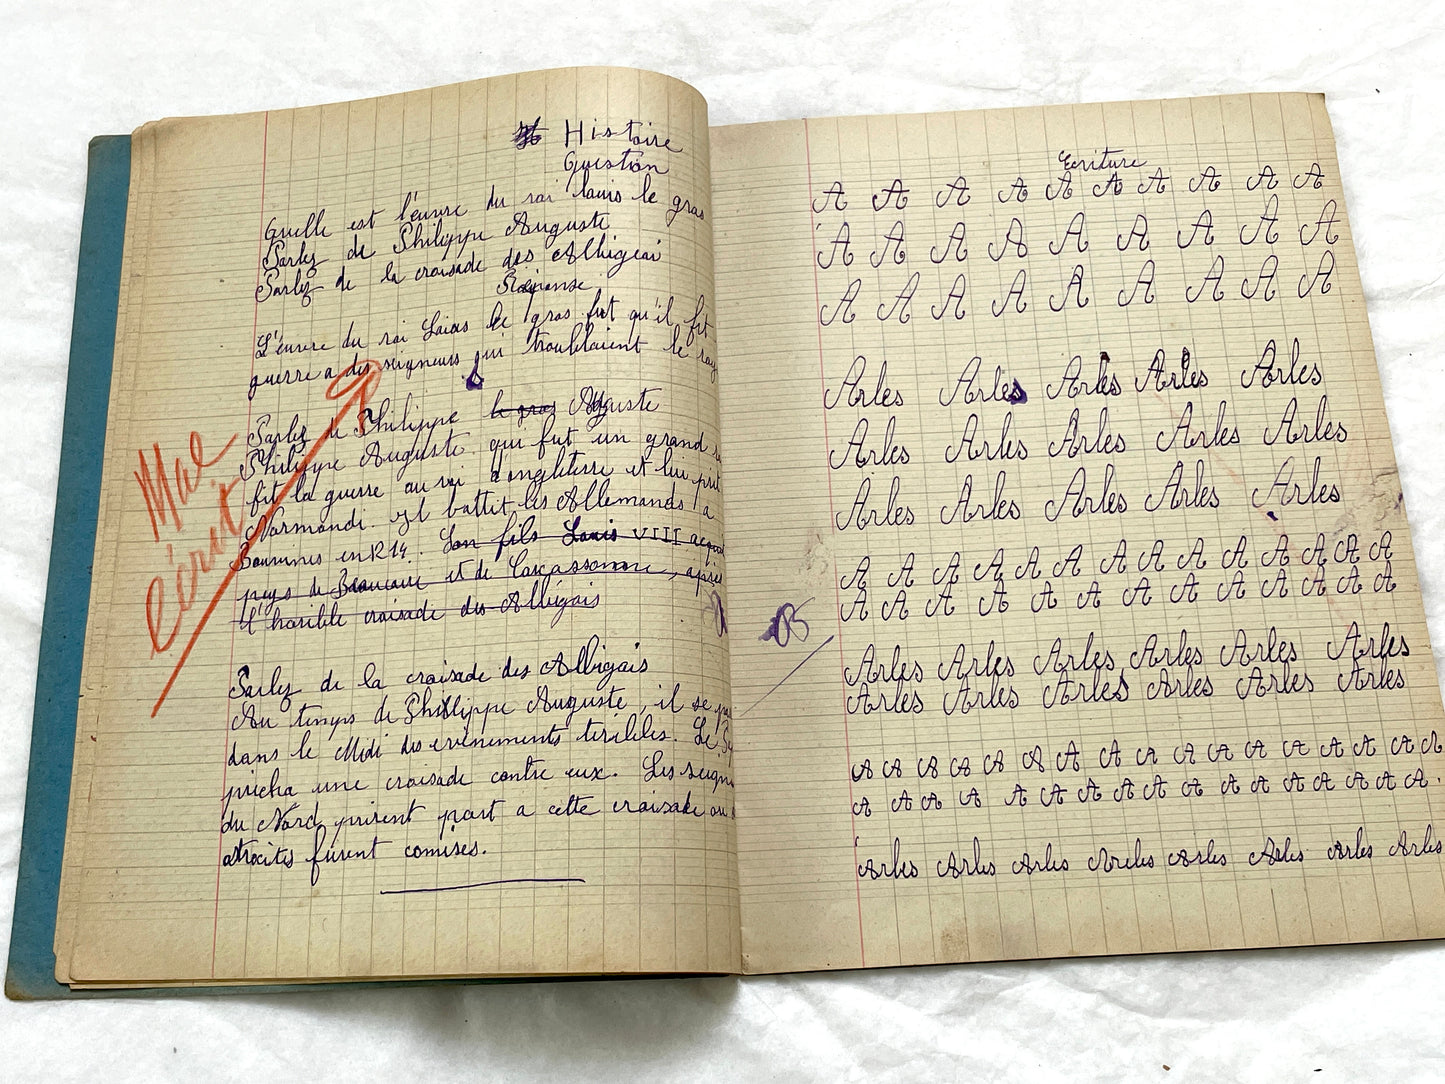 Histoire
Question
Quelle est l'œuvre du roi louis le gras
Parlez de Philippe Auguste
Parlez de la croisade des Albigeai
Réponse
L'œuvre du roi Louis le gros fut qu'il fit
guerre a des seigneurs qui troublaient le roy
Parlez de Philippe le gros Auguste
Philippe Auguste qui fut un grand
fit la guerre au roi d'angleterre et lui prit
Normandi. Il battit les Allemands a
Bouvines en 1214. Son fils Louis VIII acquit
pays de Beaucaire et de Carcassonne, après
l'horrible croisade des Albigais
Mal
écrit
Parlez de la croisade des Albigais
Au temps de Phillippe Auguste, il se
dans le Midi des evènements teribles. Le
prêcha une croisade contre eux. Les seign
du Nord prirent part a cette croisade ou
atrocites furent comises.
Ecriture
A A A A A A A A A A
A A A A A A A A A
A A A A A A A A A
Arles Arles Arles Arles Arles
Arles Arles Arles Arles Arles
Arles Arles Arles Arles Arles
A A A A A A A A A A A A A
A A A A A A A A A A A A
Arles Arles Arles Arles Arles Arles
Arles Arles Arles Arles Arles Arles
A A A A A A A A A A A A A A A A
A A A A A A A A A A A A A A A
Arles Arles Arles Arles Arles Arles Arles Arles